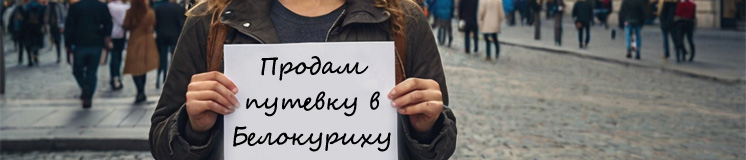 Продам
путевку в
Белокуриху